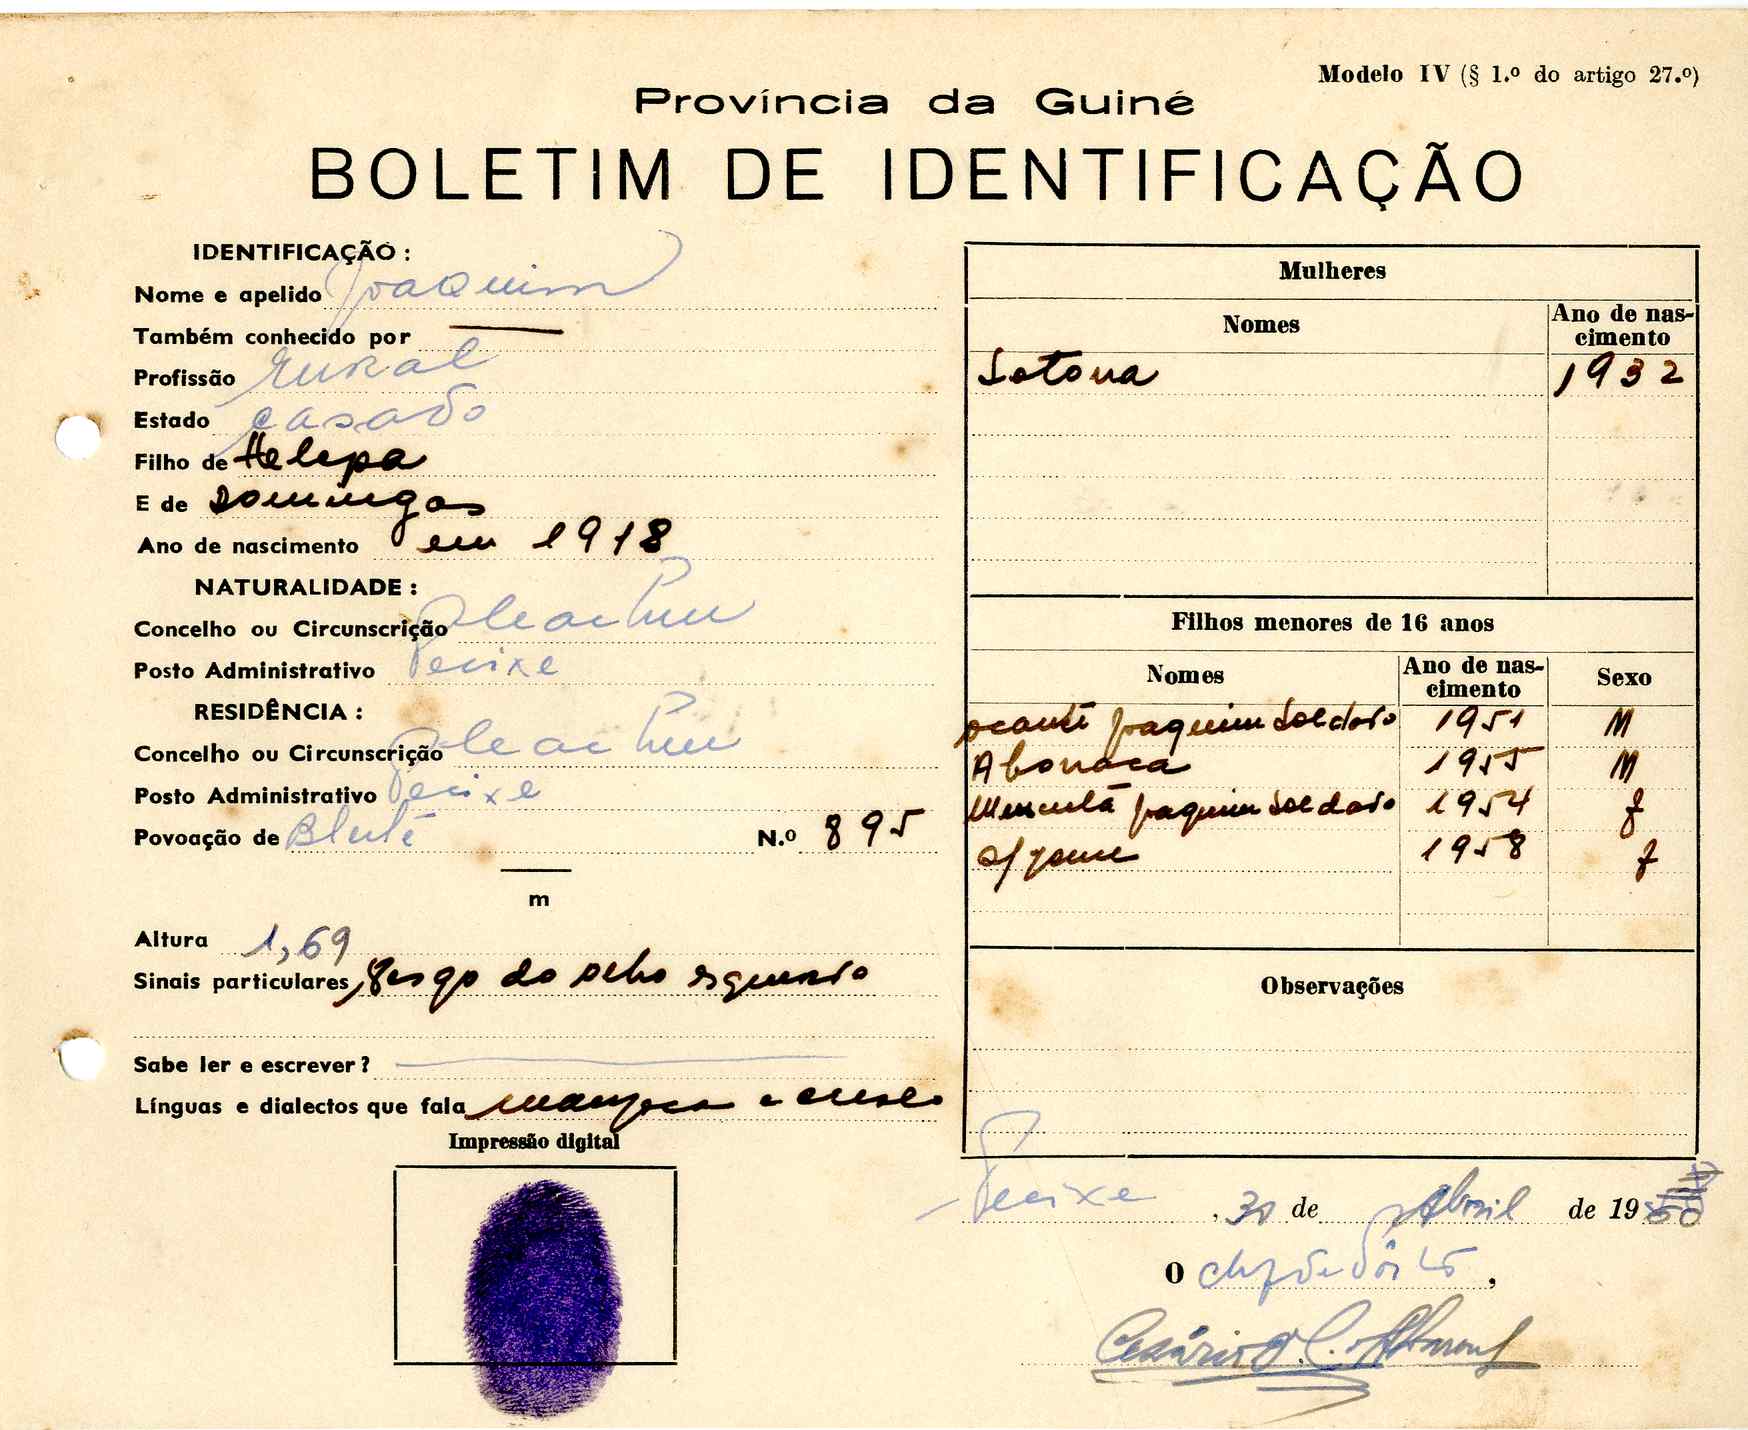 Modelo IV (§ 1.º do artigo 27.º)
Província da Guiné
BOLETIM DE IDENTIFICAÇÃO
IDENTIFICAÇÃO :
Nome e apelido Joaquim
Também conhecido por —
Profissão rural
Estado casado
Filho de Helepa
E de Domingas
Ano de nascimento em 1918
NATURALIDADE :
Concelho ou Circunscrição
Posto Administrativo Pecixe
RESIDÊNCIA :
Concelho ou Circunscrição
Posto Administrativo Pecixe
Povoação de N.º 895
m
Altura 1,69
Sinais particulares, Vesgo do olho esquerdo
Sabe ler e escrever ? —
Línguas e dialectos que fala manjaca e crioulo
Impressão digital
Mulheres
Nomes Ano de nascimento
1932
Filhos menores de 16 anos
Nomes Ano de nascimento Sexo
Joaquim Soldado 1951 M
Abonaca 1955 M
Joaquim Soldado 1954 f
1958 f
Observações
Pecixe, 30 de Abril de 1960
O chefe de Pôsto,
Cesário